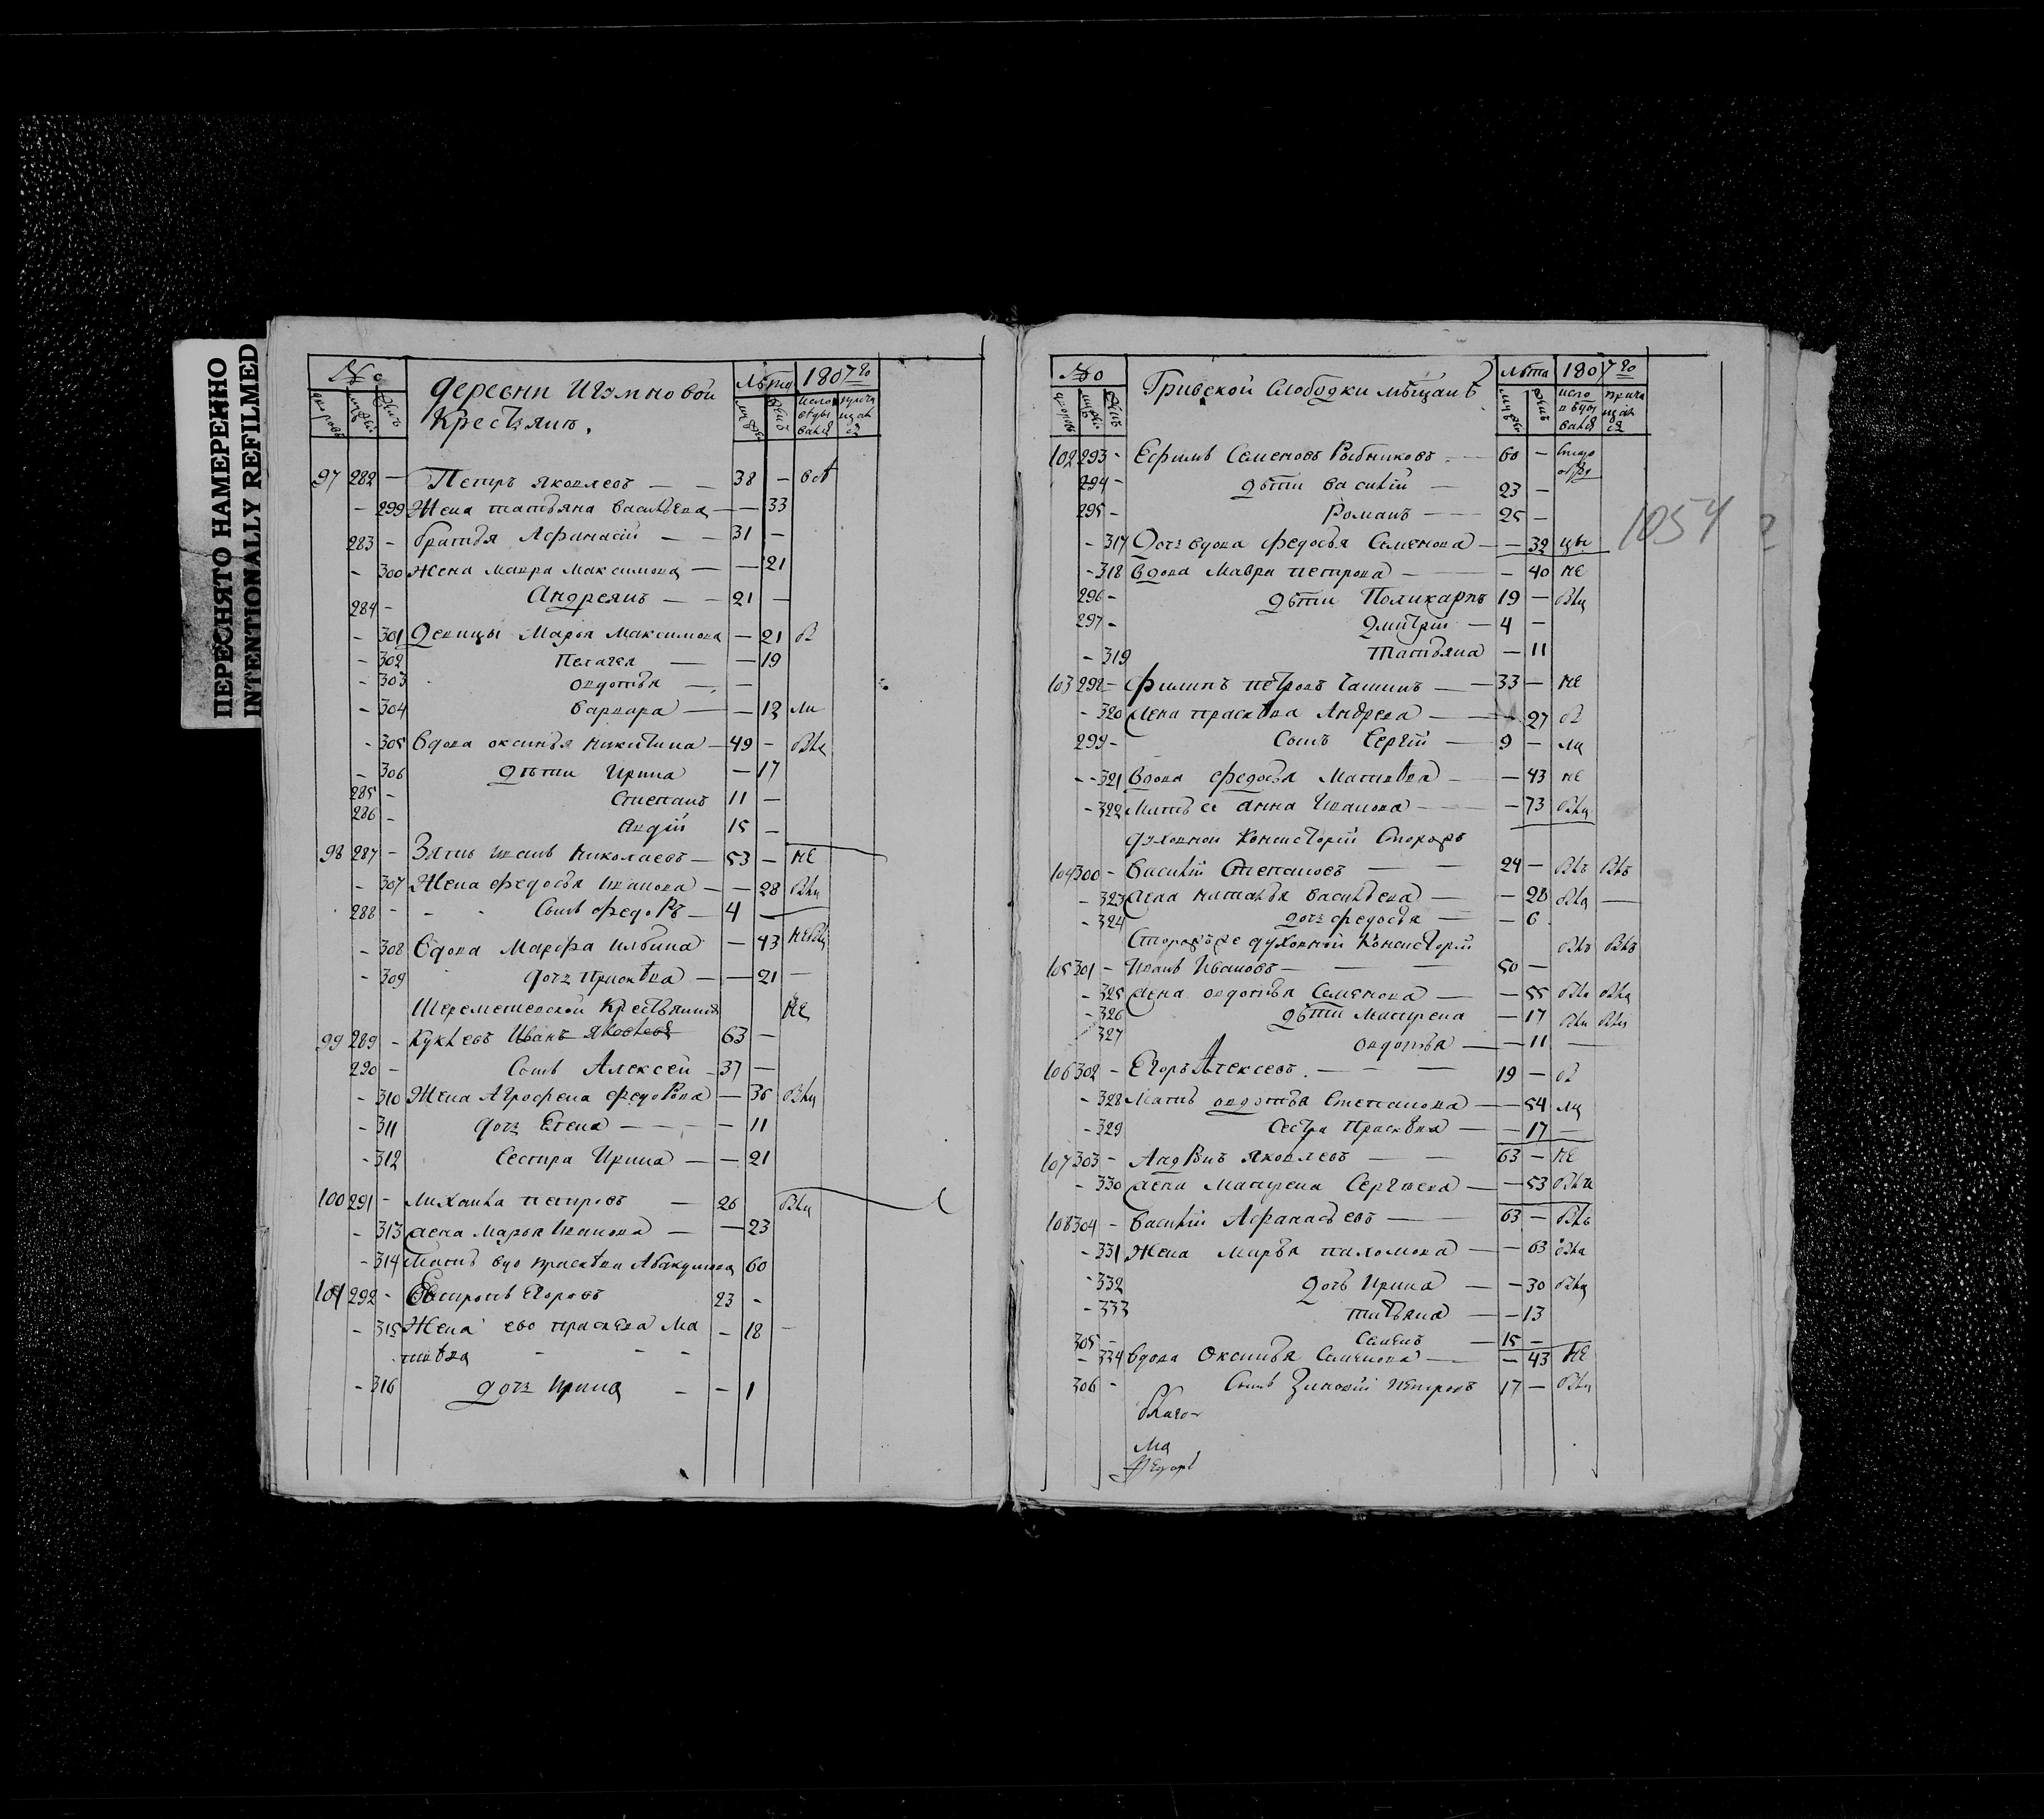 ПЕРЕСНЯТО НАМЕРЕННО
INTENTIONALLY REFILMED
№о лѣта 1807 го
деревни Игумновой
Крестьянъ.
дворовъ муж жен муж жен испо веды ванія прича щаю ся
97 282 — Петръ Яковлевъ — — 38 —
- 299 Жена татьяна васильева — — 33
283 - братья Афанасій — — 31 —
- 300 Жена мавра максимова — — 21
284 - Андреянъ — — 21 —
- 301 Девицы Марья Максимова — 21
- 302 Пелагея — — 19
- 303 овдотья — —
- 304 варвара — — 12
- 305 вдова оксинья никитина — 49 -
- 306 дѣти Ирина — 17
285 - Степанъ 11 —
286 - Авдій 15 —
98 287 - Зять иванъ николаевъ — 53 — НЕ
- 307 Жена федосья иванова — — 28
288 - - - Сынъ федоръ — 4 —
- 308 Вдова Марфа ильина — 43
- 309 дочь прасковя — — 21 —
Шереметевской Крестьянинъ НЕ
99 289 - Куклевъ Иванъ Яковлевъ 63 —
290 - Сынъ Алексей - 37 —
- 310 Жена Агрофена федорова — 36
- 311 дочь Елена — — - — 11
- 312 Сестра Ирина — — 21
100 291 - михаила петровъ — 26
- 313 жена Марья Иванова — — 23
- 314 Мать вдо прасковя Абакумова 60
101 292 - Егоровъ 23 -
- 315 Жена ево прасковя Ма - 18 -
твѣва - - -
- 316 дочь Ирина - - 1
№о Гривской Слободки мѣщанъ лѣта 1807 го
муж жен муж жен испо вѣды ванія прича щаю ся
102 293 - Ефимъ Семеновъ Рыбниковъ - — 60 —
294 - дѣти василій — 23 —
295 - Романъ — 25 —
- 317 Дочь вдова федосья Семенова — — 32
1054
- 318 вдова Мавра петрова — — 40 НЕ
296 - дѣти Поликарпъ 19 —
297 - Дмитрій — 4 —
- 319 Татьяна — 11
103 298 - филипъ петровъ — 33 — НЕ
- 320 Жена прасковя Андрева — — 27
299 - Сынъ Сергій — 9 —
- 321 Вдова федосья Матвѣва — — 43 НЕ
- 322 Мать ее анна Иванова — — 73
духовной Консисторіи Сторожъ
104 300 - василій Степановъ — — 24 —
- 323 жена наталья васильева — — 28 —
- 324 дочь федосья — — 6
духовной Консисторіи
105 301 - Иванъ Ивановъ — — 50 —
- 325 жена овдотья Семенова — — 55
- 326 дѣти Матрена — 17
327 овдотья — — 11 —
106 302 - Егоръ Алексеевъ. — — 19 —
- 328 Мать овдотья Степанова — — 54
- 329 Сестра Прасковя — — 17 —
107 303 - Яковлевъ — — 63 — НЕ
- 330 жена Матрена Сергѣева — — 53
108 304 - василій Афанасьевъ — 63 —
- 331 Жена марья пахомова — — 63
- 332 дочь Ирина — — 30
- 333 татьяна — — 13
305 - Семенъ — 15 —
- 334 вдова Оксинья Семенова — — 43 НЕ
306 - Сынъ Зиновій петровъ 17 —